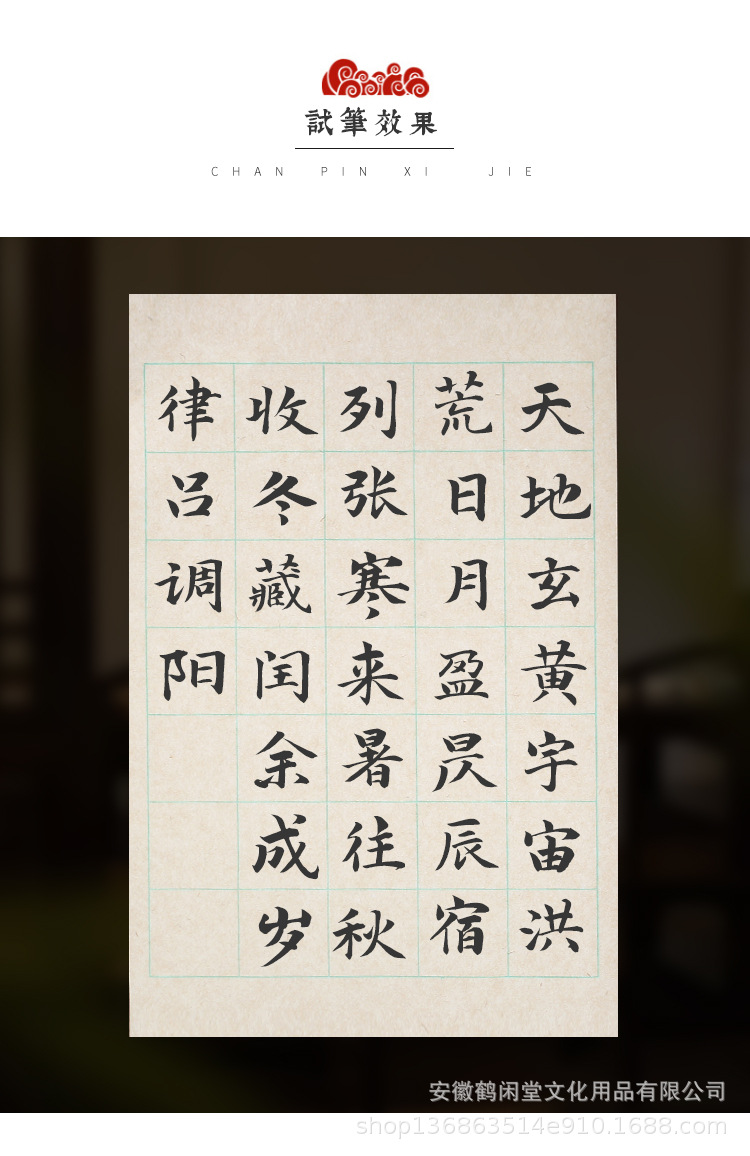 試筆效果
CHAN PIN XI JIE
天地玄黄宇宙洪
荒日月盈昃辰宿
列张寒来暑往秋
收冬藏闰余成岁
律吕调阳
安徽鹤闲堂文化用品有限公司
shop136863514e910.1688.com